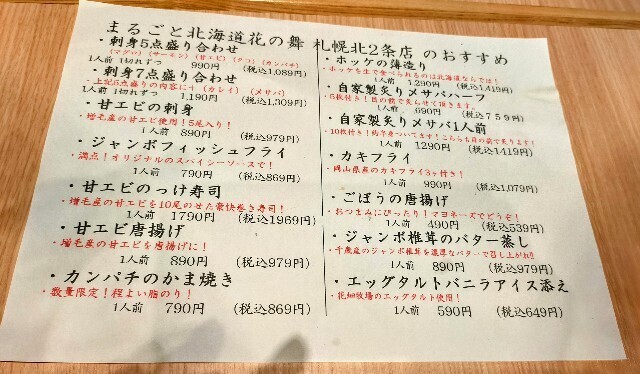 まるごと北海道花の舞 札幌北2条店 のおすすめ
・刺身5点盛り合わせ
(マグロ) (サーモン) (甘エビ) (タコ) (カンパチ)
1人前 1切れずつ 990円 (税込1,089円)
・刺身7点盛り合わせ
上記5点盛りの内容に+(カレイ) (メサバ)
1人前 1切れずつ 1,190円 (税込1,309円)
・甘エビの刺身
・増毛産の甘エビ使用!5尾入り!
1人前 890円 (税込979円)
・ジャンボフィッシュフライ
・満点!オリジナルのスパイシーソースで!
1人前 790円 (税込869円)
・甘エビのっけ寿司
・増毛産の甘エビを10尾のせた豪快巻き寿司!
1人前 1790円 (税込1969円)
・甘エビ唐揚げ
・増毛産の甘エビを唐揚げに!
1人前 890円 (税込979円)
・カンパチのかま焼き
・数量限定!程よい脂のり!
1人前 790円 (税込869円)
・ホッケの薄造り
・ホッケを生で食べられるのは北海道ならでは!
1人前 1,290円 (税込1,419円)
・自家製炙りメサバハーフ
・5枚付き!目の前で炙らせて頂きます。
1人前 690円 (税込759円)
・自家製炙りメサバ1人前
1人前 1290円 (税込1419円)
・カキフライ
・岡山県産のカキフライ3ヶ付き!
1人前 990円 (税込1,079円)
・ごぼうの唐揚げ
・おつまみにぴったり!マヨネーズでどうぞ!
1人前 490円 (税込539円)
・ジャンボ椎茸のバター蒸し
・千歳産のジャンボ椎茸を濃厚なバターで召し上がれ!!
1人前 890円 (税込979円)
・エッグタルトバニラアイス添え
・花畑牧場のエッグタルト使用!
1人前 590円 (税込649円)